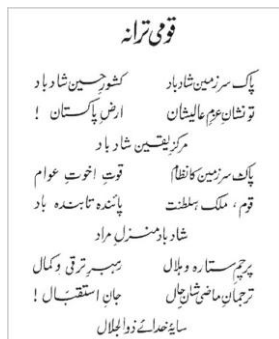 قومی ترانہ
پاک سرزمین شاد باد کشورِ حسین شاد باد
تو نشانِ عزمِ عالیشان ارضِ پاکستان !
مرکزِ یقین شاد باد
پاک سرزمین کا نظام قوتِ اخوتِ عوام
قوم، ملک، سلطنت پائندہ تابندہ باد
شاد باد منزلِ مراد
پرچمِ ستارہ و ہلال رہبرِ ترقی و کمال
ترجمانِ ماضی شانِ حال جانِ استقبال !
سایۂ خدائے ذوالجلال